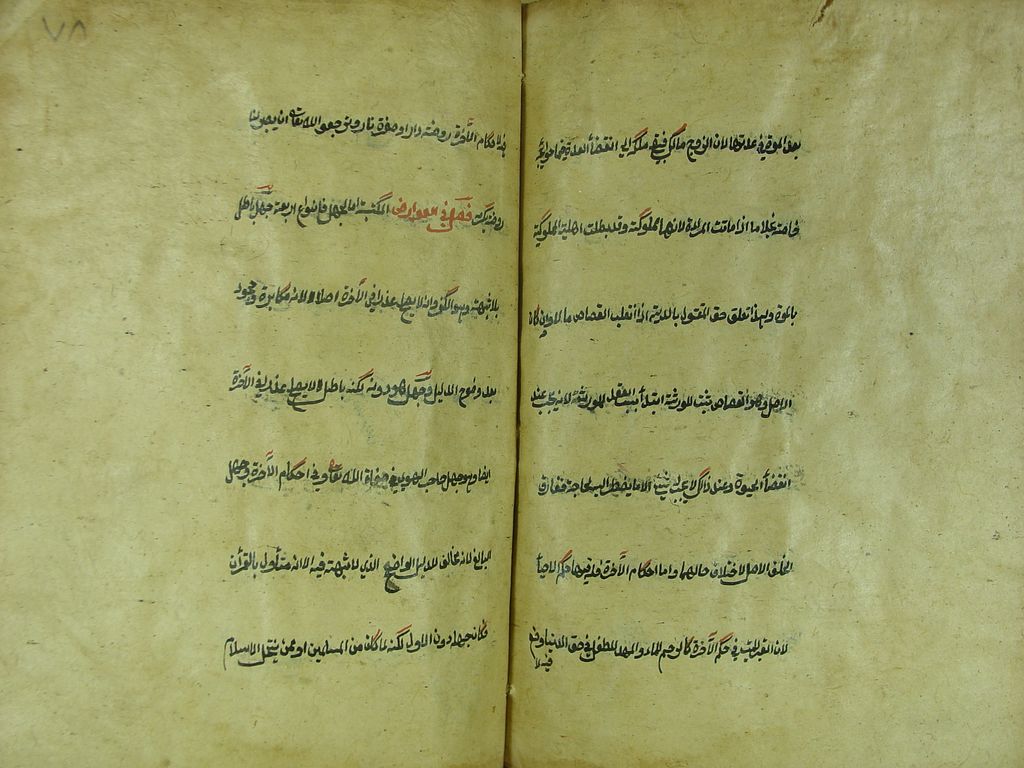 بعد الموت في عدتها لان الزوج مالك فبقي ملكه الى انقضاء العدة فيما هو من حوايجه
خاصة بخلاف ما اذا ماتت المراة لانها مملوكة وقد بطلت اهلية المملوكية
بالموت ولهذا تعلق حق المقتول بالدية اذا انقلب القصاص مالا وان كان
الاصل وهو القصاص يثبت للورثة ابتداء بسبب انعقد للمورث لانه يجب عند
انقضاء الحيوة وعند ذلك لا يجب له الا ما يضطر اليه لحاجته ففارق
الخلف الاصل لاختلاف حالهما واما احكام الآخرة فله فيها حكم الاحياء
لان القبر للميت في حكم الآخرة كالرحم للماء والمهد للطفل في حق الدنيا وضع
فيه لا
حكام الآخرة روضة دار او حفرة نار ونرجو الله تعالى ان يصيره لنا
روضة بكرمه فصل في العوارض المكتسبة اما الجهل فانواع اربعة جهل باطل
بلا شبهة وهو الكفر وانه لا يصلح عذرا في الآخرة اصلا لانه مكابرة وجحود
بعد وضوح الدليل وجهل هو دونه لكنه باطل لا يصلح عذرا في الآخرة
ايضا وهو جهل صاحب الهوى في صفات الله تعالى وفي احكام الآخرة وجهل
الباغي لانه مخالف للدليل الواضح الذي لا شبهة فيه الا انه متأول بالقرأن
فكان جهله دون الاول لكنه لما كان من المسلمين او ممن ينتحل الاسلام
٧٨